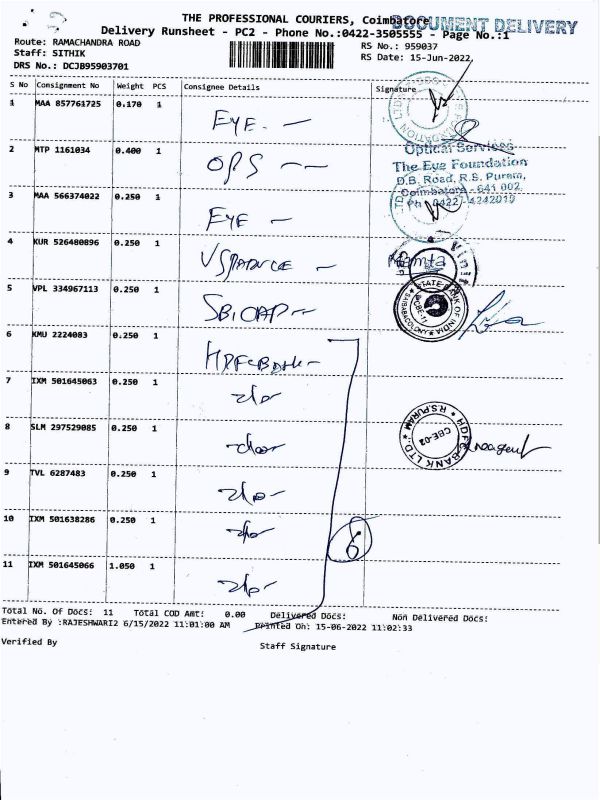 THE PROFESSIONAL COURIERS, Coimbatore
DOCUMENT DELIVERY
Delivery Runsheet - PC2 - Phone No.:0422-3505555 - Page No.:1
Route: RAMACHANDRA ROAD
RS No.: 959037
Staff: SITHIK
RS Date: 15-Jun-2022
DRS No.: DCJB95903701
S No Consignment No Weight PCS Consignee Details Signature
1 MAA 857761725 0.170 1
EYE
2 MTP 1161034 0.400 1
OPS
Optical Services
The Eye Foundation
D.B. Road, R.S. Puram,
Coimbatore - 641 002.
Ph : 0422 - 4242019
3 MAA 566374022 0.250 1
EYE
4 KUR 526480896 0.250 1
5 VPL 334967113 0.250 1
SBICAP
STATE BANK OF INDIA
SAIBABACOLONY
CBE-11
6 KMU 2224083 0.250 1
7 IXM 501645063 0.250 1
8 SLM 297529085 0.250 1
HDFC BANK LTD
R.S.PURAM
CBE-02
9 TVL 6287483 0.250 1
10 IXM 501638286 0.250 1
6
11 IXM 501645066 1.050 1
Total No. Of Docs: 11 Total COD Amt: 0.00 Delivered Docs: Non Delivered Docs:
Entered By :RAJESHWARI2 6/15/2022 11:01:00 AM Printed On: 15-06-2022 11:02:33
Verified By
Staff Signature